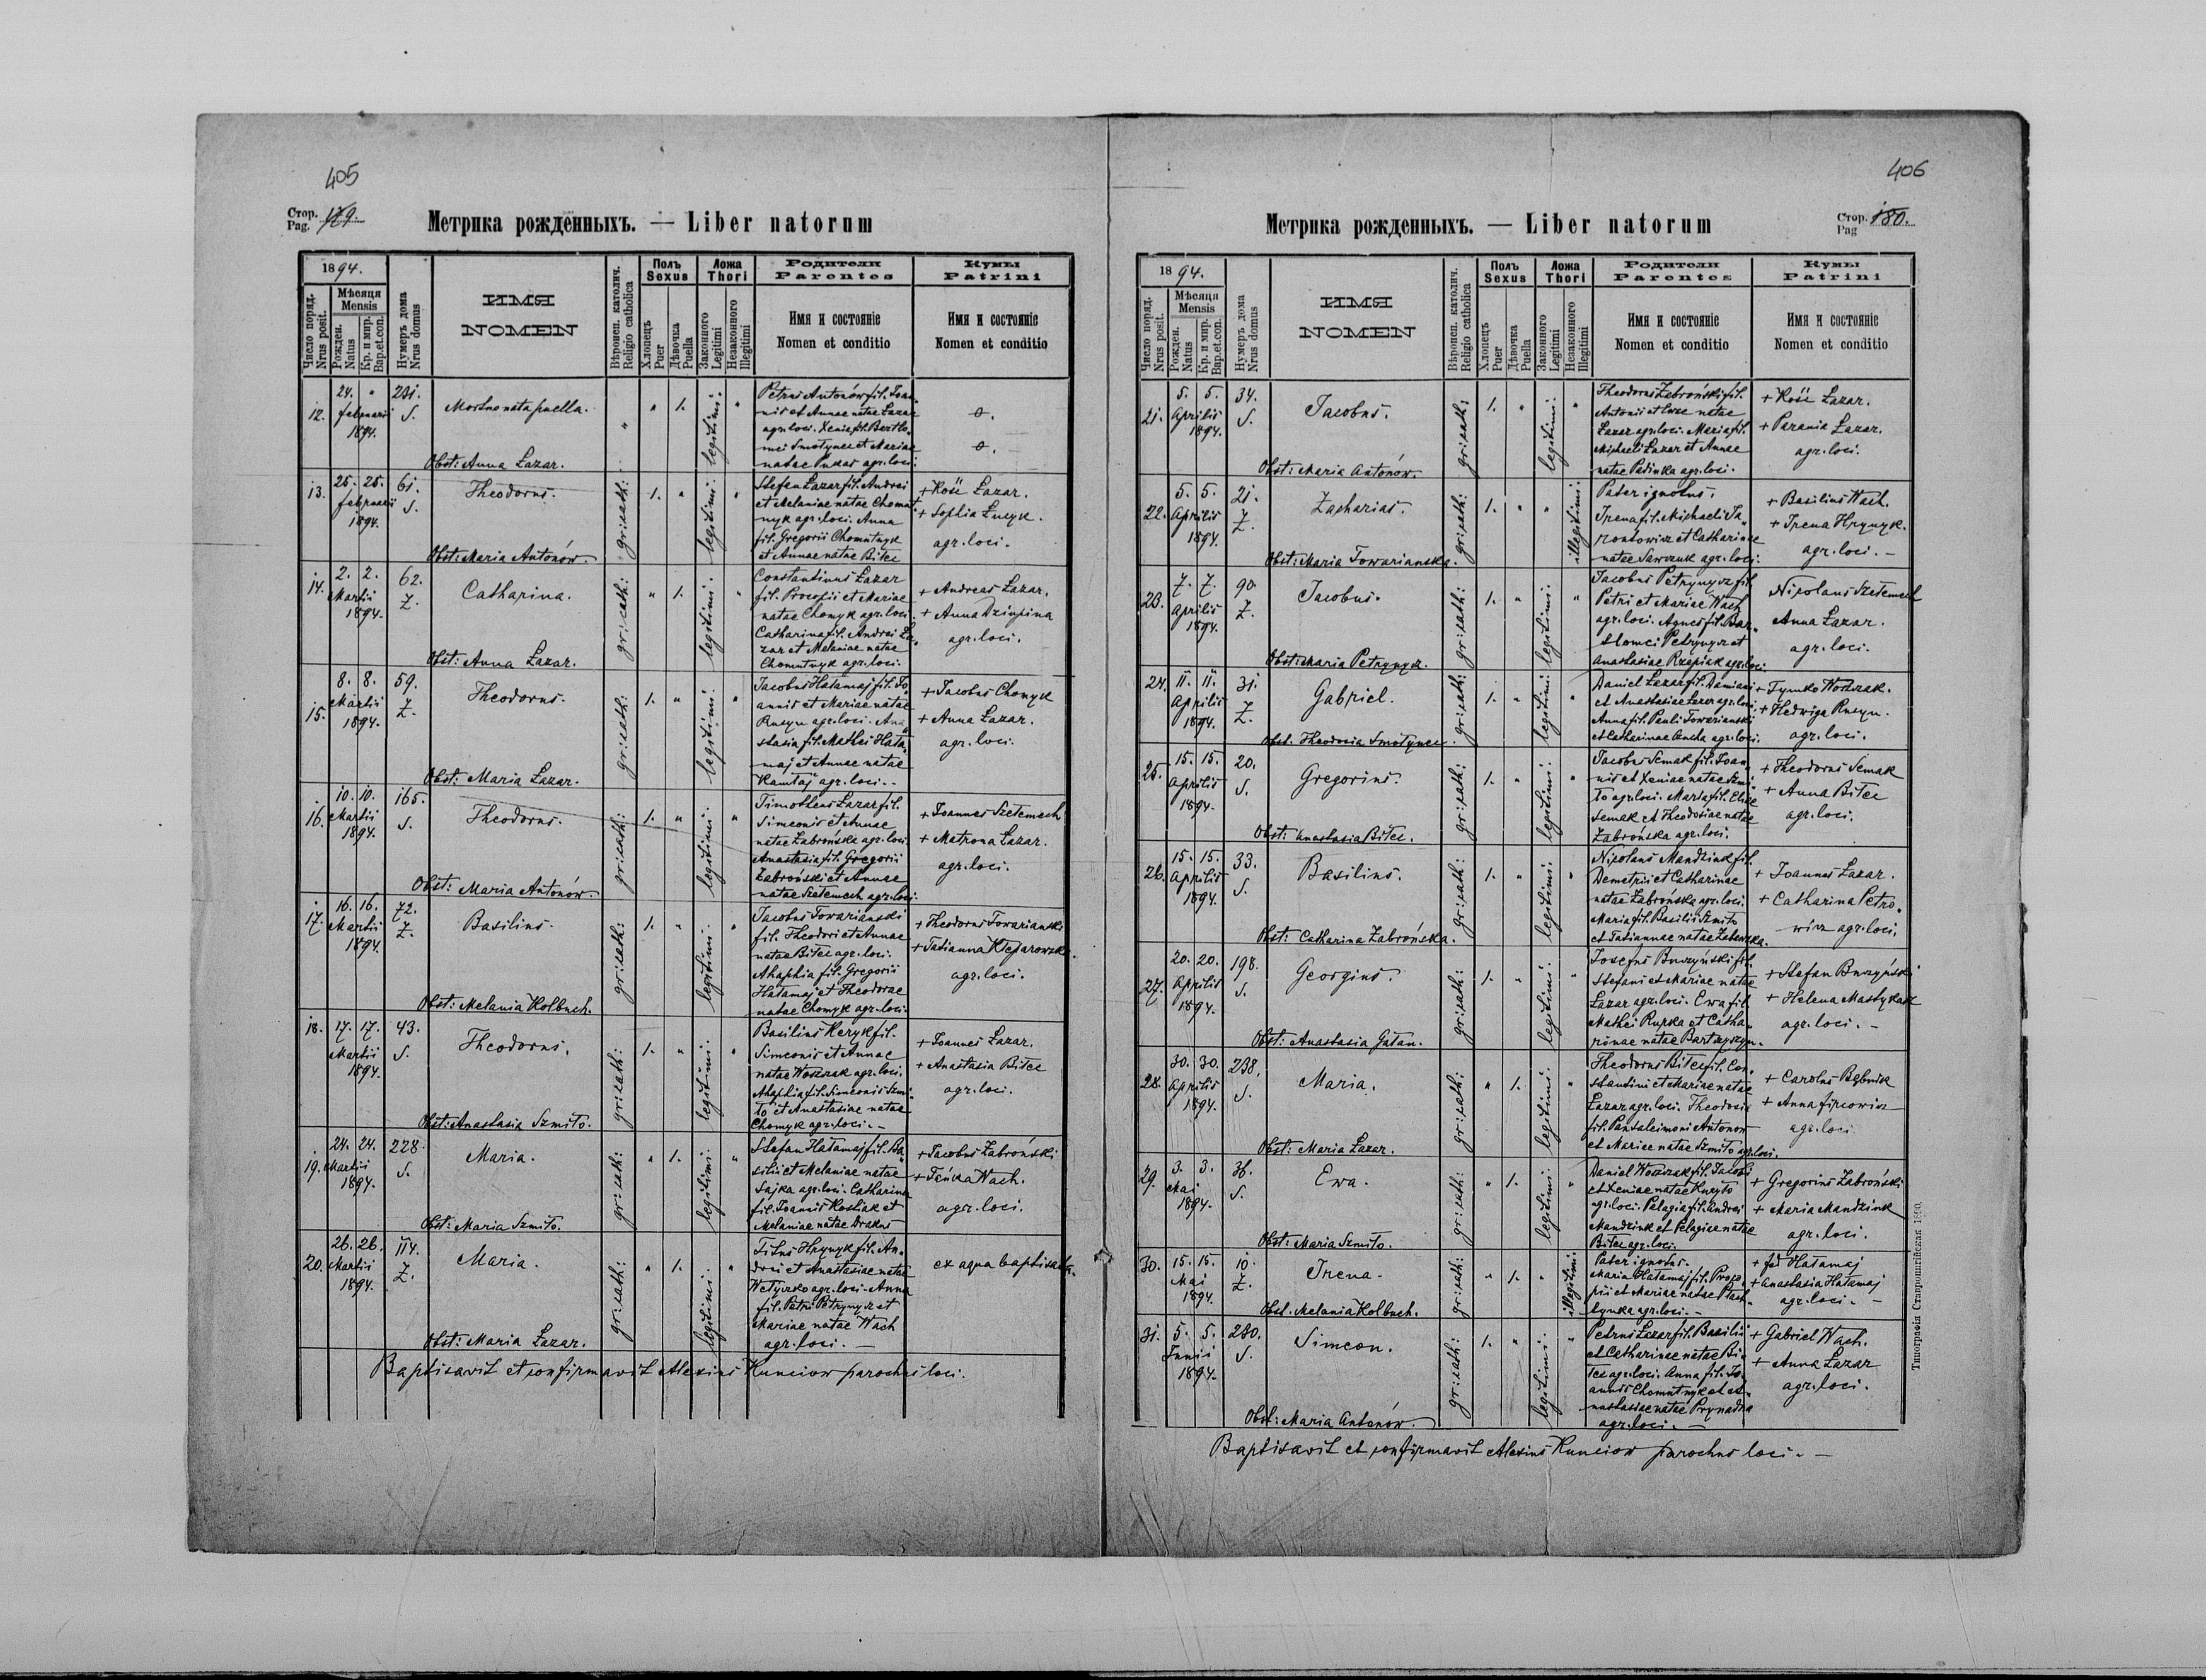 405
Стор. 179.
Pag.
Метрика рожденныхъ. — Liber natorum
1894.
Число поряд.
Nrus posit.
Мѣсяця
Mensis
Рожден.
Natus
Кр. и мир.
Bap.et.con.
Нумеръ дома
Nrus domus
ИМЯ
NOMEN
Вѣроисп. католич.
Religio catholica
Полъ
Sexus
Хлопецъ
Puer
Дѣвочка
Puella
Ложа
Thori
Законного
Legitimi
Незаконного
Illegitimi
Родители
Parentes
Имя и состояніе
Nomen et conditio
Кумы
Patrini
Имя и состояніе
Nomen et conditio
12. 24. " februarii 1894. 231. S.
Mortuo nata puella.
" 1. legitimi: "
Petrus Antonów fil. Joan-
nis et Annae natae Łazar
agr. loci. Xenia fil. Bartło-
mei Smołyniec et Mariae
natae Pukas agr. loci.
Obst: Anna Łazar.
13. 25. 25. februarii 1894. 61. S.
Theodorus.
gr: cath: 1. " legitimi: "
Stefan Łazar fil. Andrei
et Melaniae natae Chomut-
nyk agr. loci. Anna
fil. Gregorii Chomutnyk
et Annae natae Biłec
+ Kość Łazar.
+ Sophia Łucyk.
agr. loci.
Obst: Maria Antonów.
14. 2. 2. Martii 1894. 62. Z.
Catharina.
gr: cath: " 1. legitimi: "
Constantinus Łazar
fil. Procopii et Mariae
natae Chomyk agr. loci.
Catharina fil. Andrei Ła-
zar et Melaniae natae
Chomutnyk agr. loci.
+ Andreas Łazar.
+ Anna Dziupina
agr. loci.
Obst: Anna Łazar.
15. 8. 8. Martii 1894. 59. Z.
Theodorus.
gr: cath: 1. " legitimi: "
Jacobus Hałamaj fil. Jo-
annis et Mariae natae
Rucyn agr. loci. Ana-
stasia fil. Mathei Hała-
maj et Annae natae
Kantaj agr. loci. -
+ Jacobus Chomyk
+ Anna Łazar.
agr. loci.
Obst: Maria Łazar.
16. 10. 10. Martii 1894. 165. S.
Theodorus.
gr: cath: 1. " legitimi: "
Timotheus Łazar fil.
Simeonis et Annae
natae Zabrońska agr. loci.
Anastasia fil. Gregorii
Zabroński et Annae
natae Szełemech agr. loci.
+ Joannes Szełemech
+ Matrona Łazar.
agr. loci.
Obst: Maria Antonów.
17. 16. 16. Martii 1894. 72. Z.
Basilius.
gr: cath: 1. " legitimi: "
Jacobus Towarianski
fil. Theodori et Annae
natae Biłec agr. loci.
Ahaphia fil. Gregorii
Hałamaj et Theodorae
natae Chomyk agr. loci.
+ Theodorus Towarianski
+ Tatianna Kleparowska.
agr. loci.
Obst: Melania Holbuch.
18. 17. 17. Martii 1894. 43. S.
Theodorus.
gr: cath: 1. " legitimi: "
Basilius Keryk fil.
Simeonis et Annae
natae Woszczak agr. loci.
Ahaphia fil. Simeonis Szmi-
ło et Anastasiae natae
Chomyk agr. loci. -
+ Joannes Łazar.
+ Anastasia Biłec
agr. loci.
Obst: Anastasia Szmiło.
19. 24. 24. Martii 1894. 228. S.
Maria.
gr: cath: " 1. legitimi: "
Stefan Hałamaj fil. Ba-
silii et Melaniae natae
Sajka agr. loci. Catharina
fil. Joannis Kostiak et
Melaniae natae Drakus
+ Jacobus Zabroński
+ Feńka Wach.
agr. loci.
Obst: Maria Szmiło.
20. 26. 26. Martii 1894. 114. Z.
Maria.
gr: cath: " 1. legitimi: "
Titus Hrynyk fil. An-
drei et Anastasiae natae
agr. loci. Anna
fil. Petri Petrynycz et
Mariae natae Wach
agr. loci. —
ex aqua baptisata.
Obst: Maria Łazar.
Baptisavit et confirmavit Alexius Kunciow parochus loci.
406
Стор. 180.
Pag
Метрика рожденныхъ. — Liber natorum
1894.
Число поряд.
Nrus posit.
Мѣсяця
Mensis
Рожден.
Natus
Кр. и мир.
Bap.et.con.
Нумеръ дома
Nrus domus
ИМЯ
NOMEN
Вѣроисп. католич.
Religio catholica
Полъ
Sexus
Хлопецъ
Puer
Дѣвочка
Puella
Ложа
Thori
Законного
Legitimi
Незаконного
Illegitimi
Родители
Parentes
Имя и состояніе
Nomen et conditio
Кумы
Patrini
Имя и состояніе
Nomen et conditio
21. 5. 5. Aprilis 1894. 34. S.
Jacobus.
gr: cath: 1. " legitimi: "
Theodorus Zabroński fil.
Antonii et Evae natae
Łazar agr. loci. Maria fil.
Michaeli Łazar et Annae
natae Padinka agr. loci.
+ Kość Łazar.
+ Parania Łazar.
agr. loci.
Obst: Maria Antonów.
22. 5. 5. Aprilis 1894. 21. Z.
Zacharias.
gr: cath: 1. " " illegitimi:
Pater ignotus.
Irena fil. Michaeli Ja-
rontowicz et Catharinae
natae Sawczuk agr. loci.
+ Basilius Wach.
+ Irena Hrynyk.
agr. loci. -
Obst: Maria Towarianska.
23. 7. 7. Aprilis 1894. 90. Z.
Jacobus.
gr: cath: 1. " legitimi: "
Jacobus Petrynycz fil.
Petri et Mariae Wach
agr. loci. Agnes fil. Bar-
tłomei Petrynycz et
Anastasiae Rzepiak agr. loci.
Nicolaus Szełemech
Anna Łazar.
agr. loci.
Obst: Maria Petrynycz.
24. 11. 11. Aprilis 1894. 31. Z.
Gabriel.
gr: cath: 1. " legitimi: "
Daniel Łazar fil. Damiani
et Anastasiae Łazar agr. loci.
Anna fil. Pauli Towarianski
et Catharinae agr. loci.
+ Tymko Woszczak.
+ Hedwiga Rucyn.
agr. loci.
Obst. Theodosia Smołyniec.
25. 15. 15. Aprilis 1894. 20. S.
Gregorius.
gr: cath: 1. " legitimi: "
Jacobus Semak fil. Joan-
nis et Xeniae natae Szmi-
ło agr. loci. Maria fil. Eliae
Semak et Theodosiae natae
Zabrońska agr. loci.
+ Theodorus Semak
+ Anna Biłec
agr. loci.
Obst: Anastasia Biłec.
26. 15. 15. Aprilis 1894. 33. S.
Basilius.
gr: cath: 1. " legitimi: "
Nicolaus Mandziuk fil.
Demetrii et Catharinae
natae Zabrońska agr. loci.
Maria fil. Basilii Szmiło
et Tatiannae natae
+ Joannes Łazar.
+ Catharina Petro-
wicz agr. loci.
Obst: Catharina Zabrońska.
27. 20. 20. Aprilis 1894. 198. S.
Georgius.
gr: cath: 1. " legitimi: "
Josefus Buczyński fil.
Stefani et Mariae natae
Łazar agr. loci. Ewa fil.
Mathei Rupka et Catha-
rinae natae Bartkyszyn.
+ Stefan Buczyński
+ Helena Mastykasz
agr. loci. -
Obst: Anastasia Gałan.
28. 30. 30. Aprilis 1894. 238. S.
Maria.
gr: cath: " 1. legitimi: "
Theodorus Biłec fil. Con-
stantini et Mariae natae
Łazar agr. loci. Theodosia
fil. Pantaleimoni Antonow
et Mariae natae Szmiło agr. loci.
+ Carolus Bąbnik
+ Anna
agr. loci
Obst: Maria Łazar.
29. 3. 3. Mai 1894. 36. S.
Ewa.
gr: cath: " 1. legitimi: "
Daniel Woszczak fil. Jacobi
et Xeniae natae Kuryło
agr. loci. Pelagia fil. Andrei
Mandziuk et Pelagiae natae
Biłec agr. loci.
+ Gregorius Zabroński
+ Maria Mandziuk
agr. loci.
Obst: Maria Szmiło.
30. 15. 15. Mai 1894. 10. Z.
Irena.
gr: cath: " 1. " illegitimi:
Pater ignotus.
Maria Hałamaj fil. Proco-
pii et Mariae natae Ptach-
agr. loci. -
+ Fed Hałamaj
+ Anastasia Hałamaj
agr. loci. -
Obst. Melania Holbuch.
31. 5. 5. Junii 1894. 280. S.
Simeon.
gr: cath: 1. " legitimi: "
Petrus Łazar fil. Basilii
et Catharinae natae Bi-
łec agr. loci. Anna fil. Jo-
annis Chomutnyk et A-
nastasiae natae Prynadna
agr. loci. -
+ Gabriel Wach.
+ Anna Łazar
agr. loci.
Obst: Maria Antonów.
Baptisavit et confirmavit Alexius Kunciow parochus loci. —
Типографія Ставропигійская 1890.